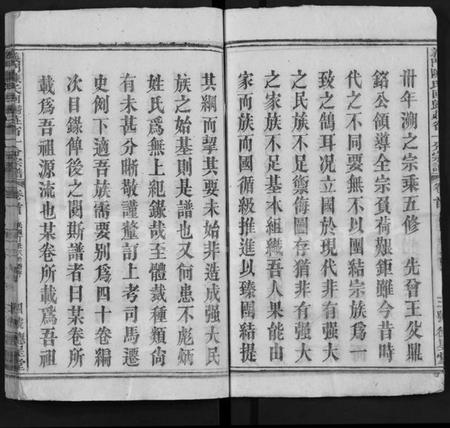 卅年溯之宗乘五修　先曾王父鼎
鉻公領導全宗負荷艱鉅雖今昔時
代之不同要無不以團結宗族為一
致之鵠耳況立國於現代非有强大
之民族不足禦侮圖存猶非有强大
之家族不足基本組織吾人果能由
家而族而國循級推進以臻團結提
其綱而望其要未始非造成强大民
族之始基則是譜也又何患不彪炳
姓氏為無上紀錄哉至體裁種類尚
有未甚分晰敬謹釐訂上考司馬遷
史例下適吾族需要別為四十卷編
次目錄俾後之閱斯譜者曰某卷所
載為吾祖源流也某卷所載為吾祖